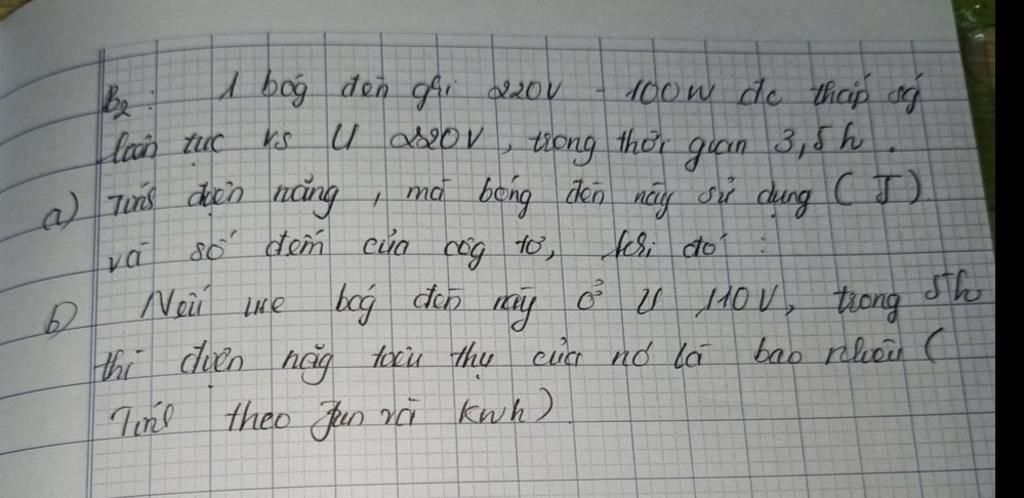 B2: 1 bóg đèn ghi 220V - 100W đc thắp ság
liên tục vs U 220V, trong thời gian 3,5h.
a) Tính điện năng, mà bóng đèn này sử dụng (J)
và số đếm của côg tơ, khi đó:
b) Nếu mẹ bóg đèn này ở U 110V, trong 5h
thì điện năg tiêu thụ của nó là bao nhiêu (
Tính theo Jun và kwh)